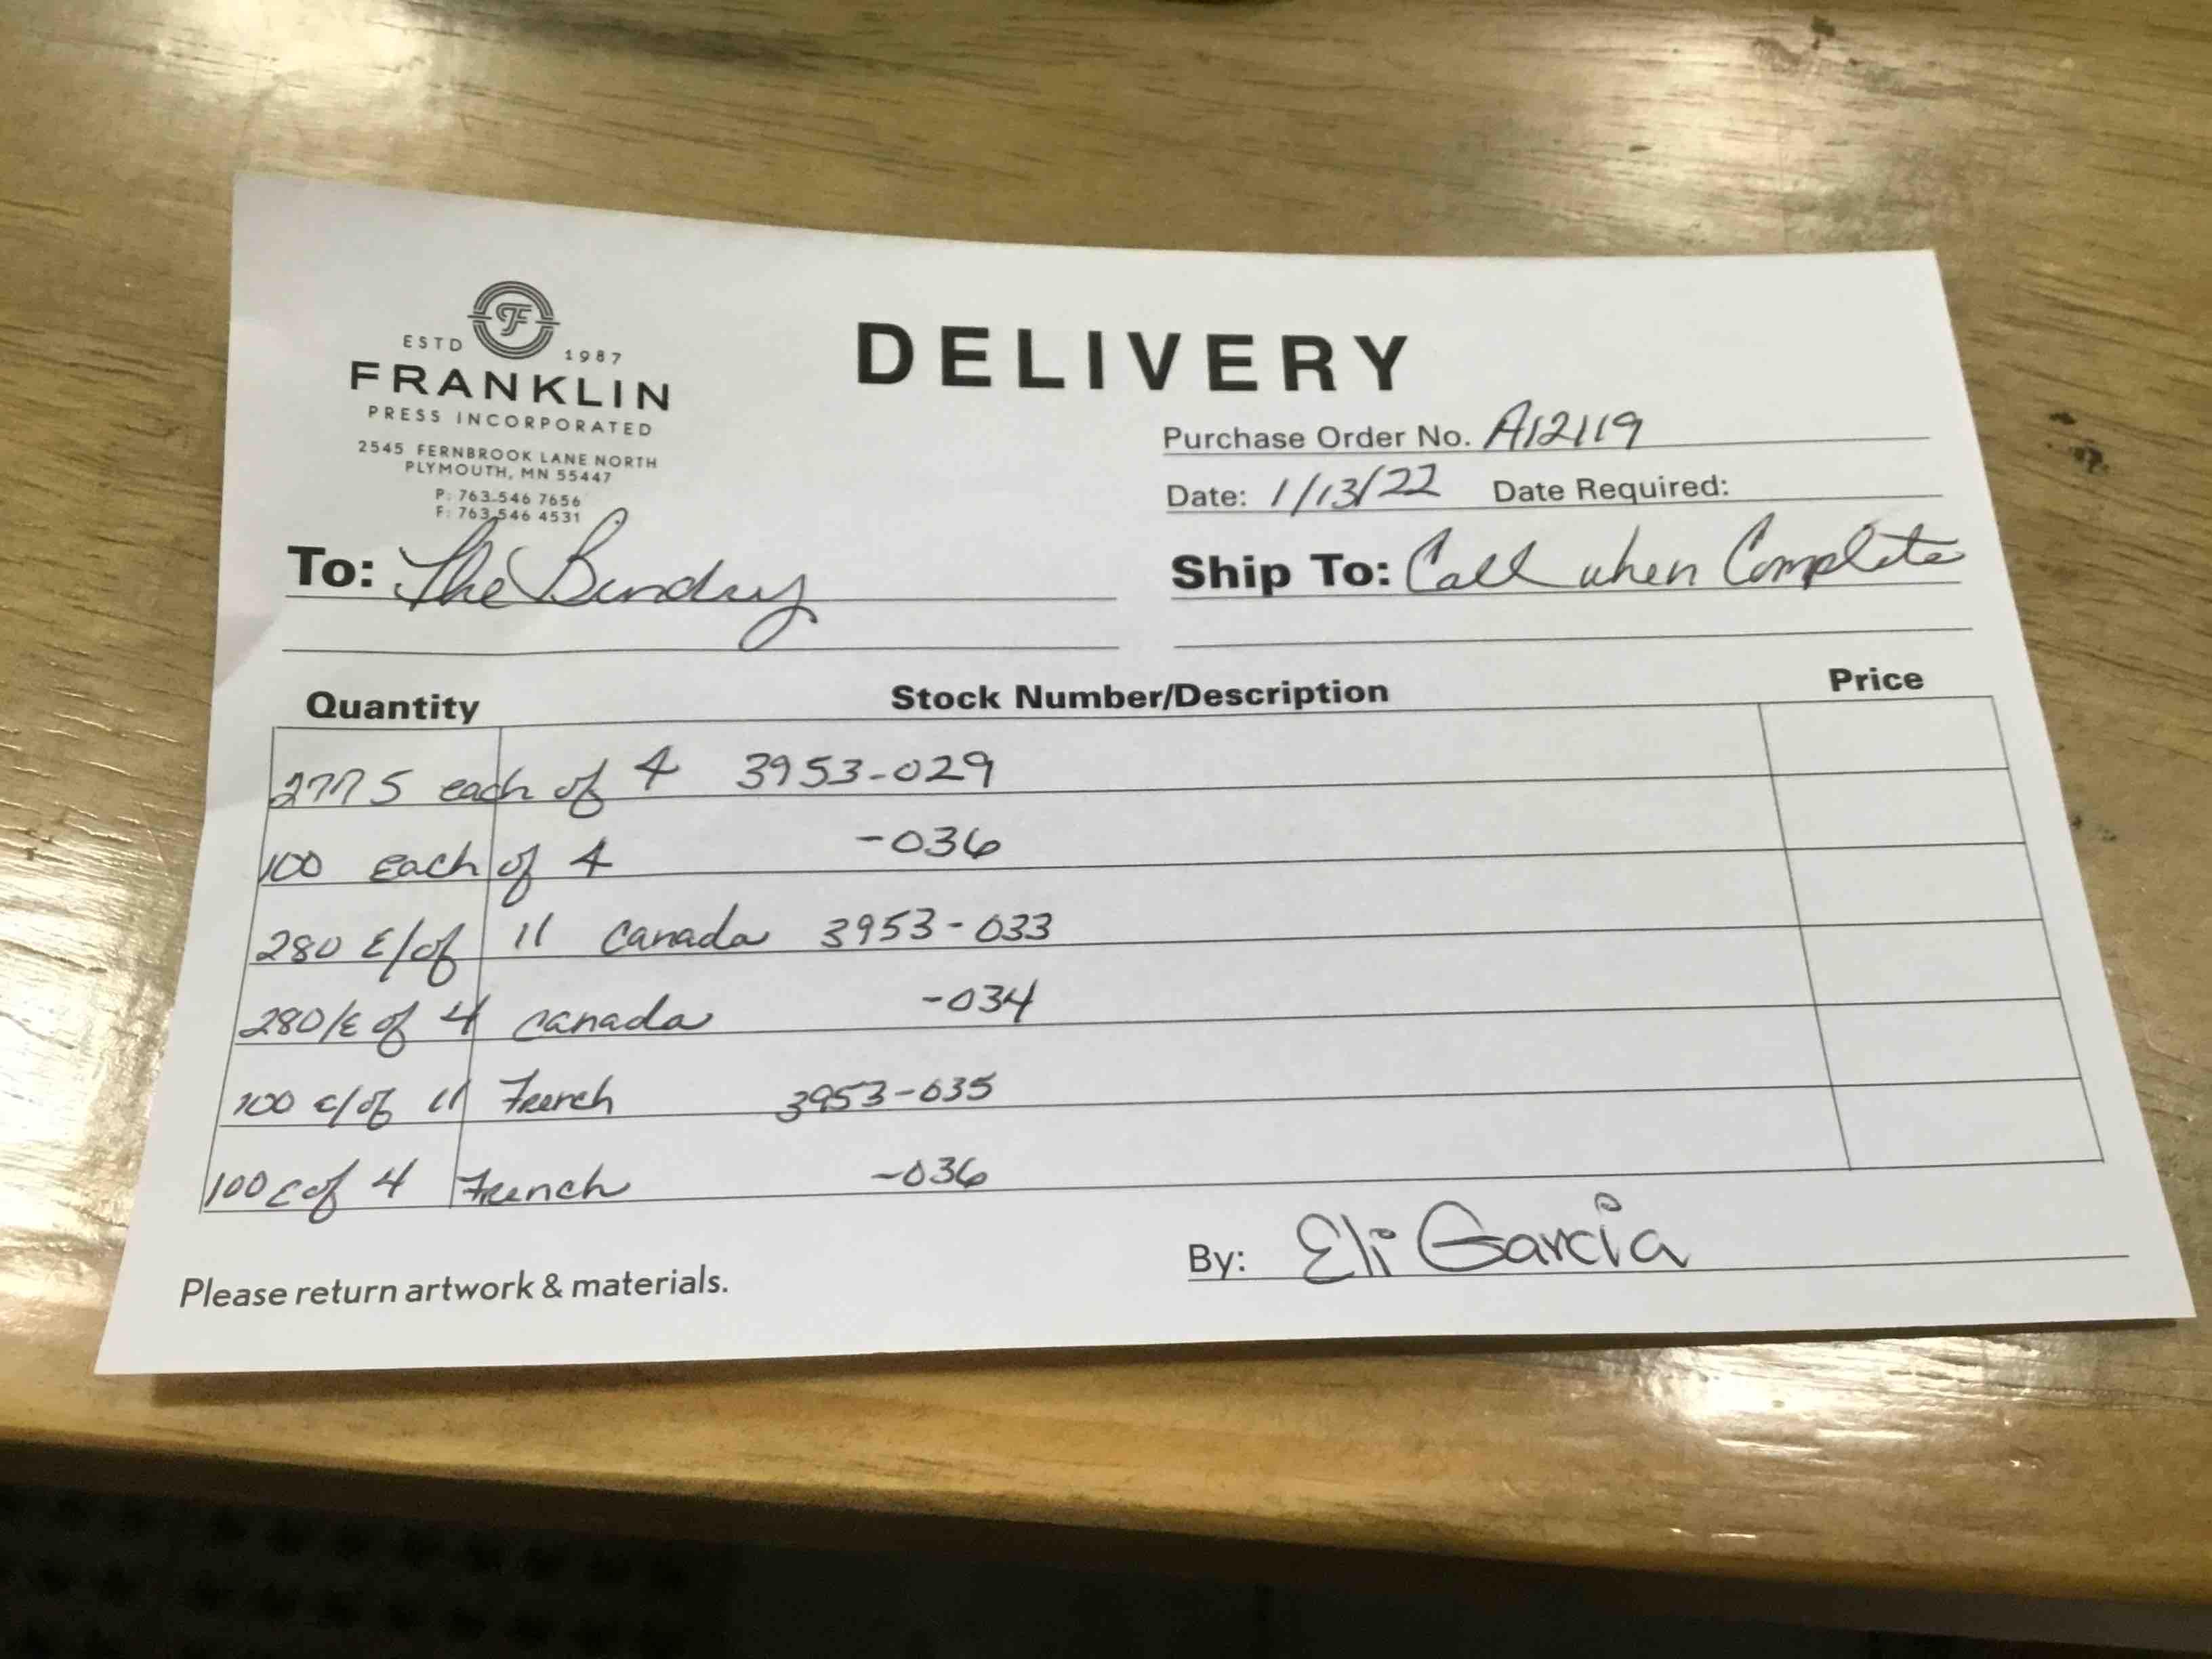 ESTD 1987
FRANKLIN
PRESS INCORPORATED
2545 FERNBROOK LANE NORTH
PLYMOUTH, MN 55447
P: 763.546 7656
F: 763.546 4531
DELIVERY
Purchase Order No. A12119
Date: 1/13/22 Date Required:
To: The Bindry
Ship To: Call when Complete
Quantity Stock Number/Description Price
2775 each of 4 3953-029
100 each of 4 -036
280 E/of 11 Canada 3953-033
280/E of 4 Canada -034
100 E/of 11 French 3953-035
100 E of 4 French -036
Please return artwork & materials.
By: Eli Garcia